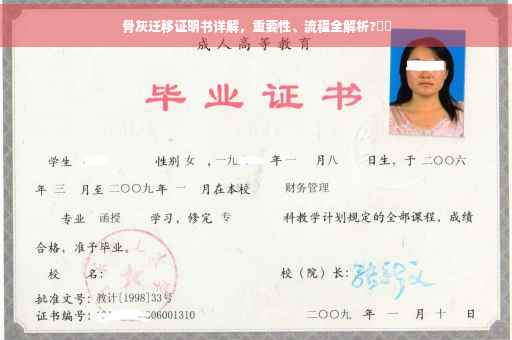 骨灰迁移证明书详解，重要性、流程全解析?
成人高等教育
毕业证书
学生 性别 女 ，一九 年 一 月 八 日生，于 二〇〇六
年 三 月至 二〇〇九 年 一 月在本校 财务管理
专业 函授 学习，修完 专 科教学计划规定的全部课程，成绩
合格，准予毕业。
校 名： 校（院）长：
批准文号：教计[1998]33号
证书编号： 06001310 二〇〇九 年 一 月 十 日